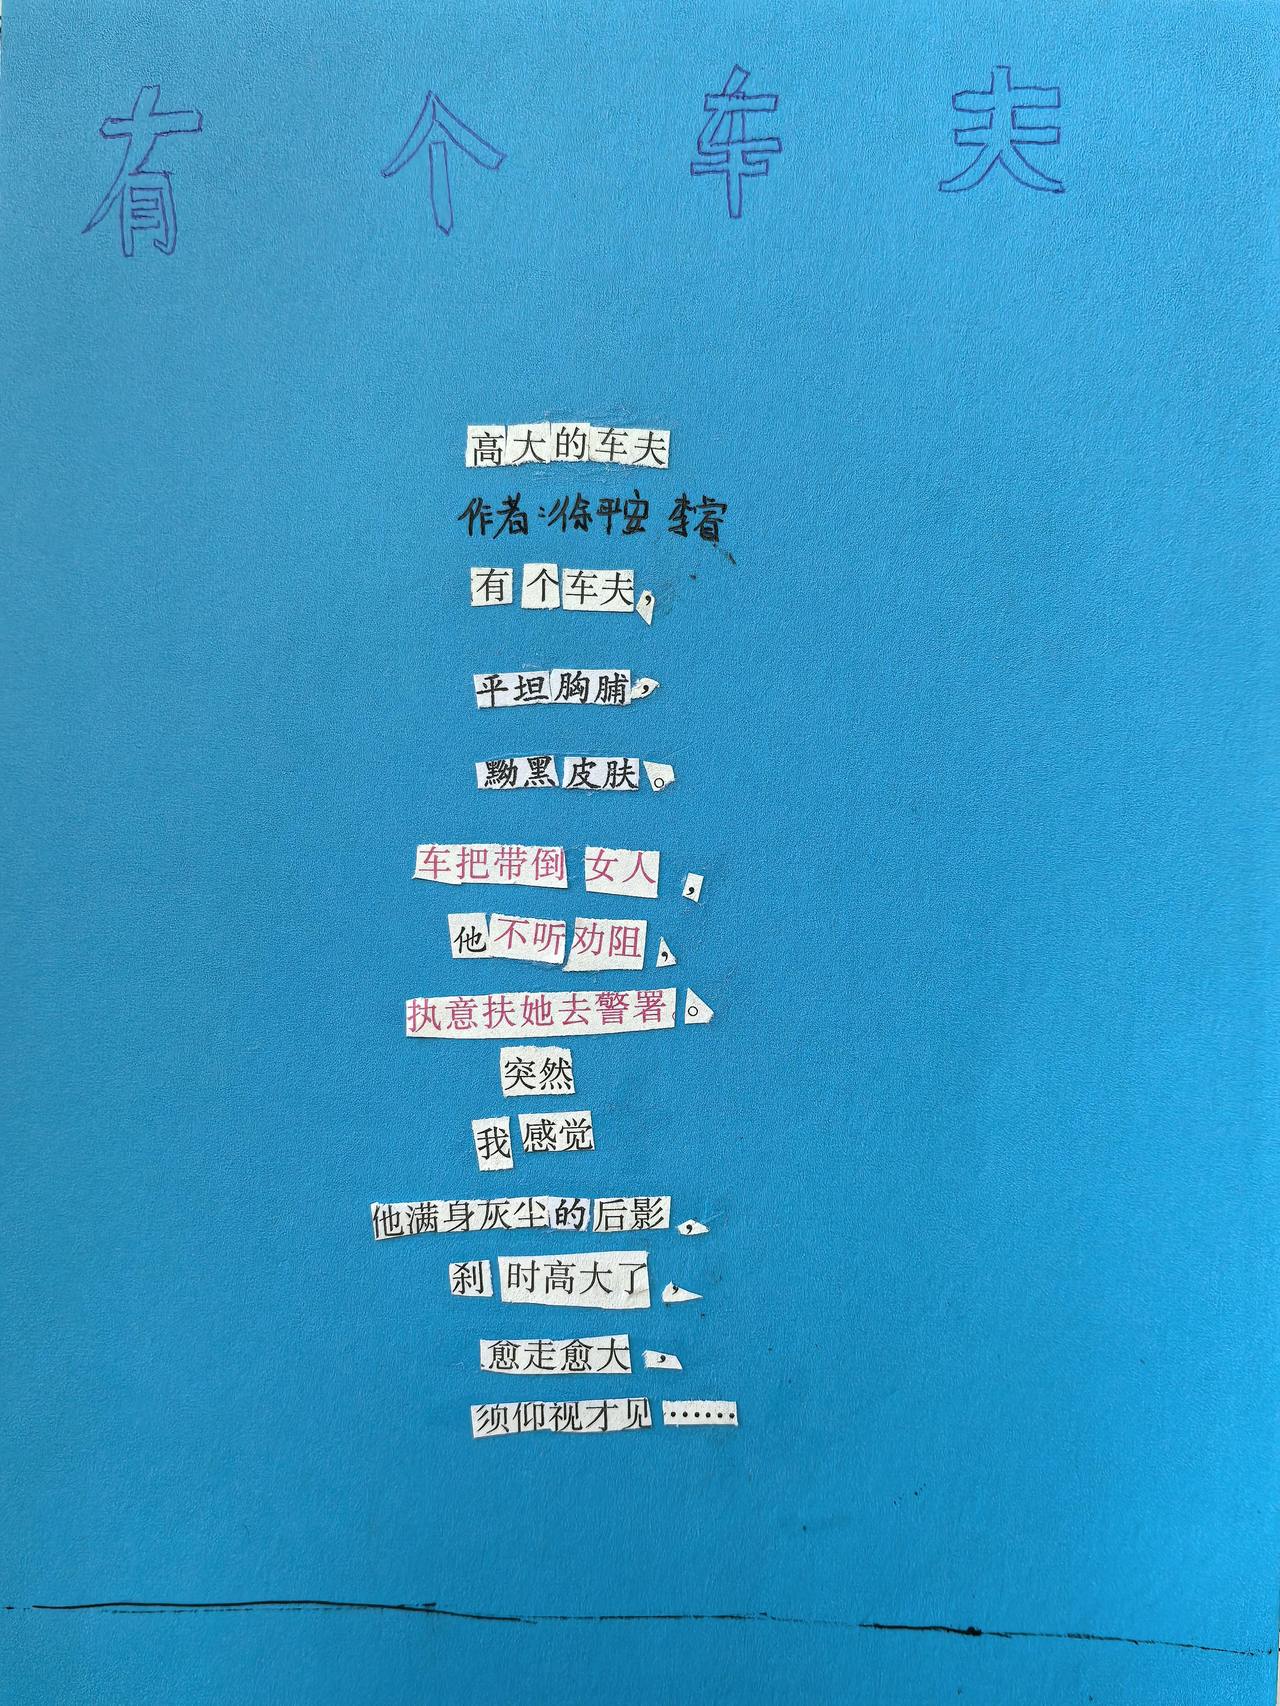 有个车夫
高大的车夫
作者:徐平安 李睿
有个车夫，
平坦胸脯，
黝黑皮肤。
车把带倒女人，
他不听劝阻，
执意扶她去警署。
突然
我感觉
他满身灰尘的后影，
刹时高大了，
愈走愈大，
须仰视才见……